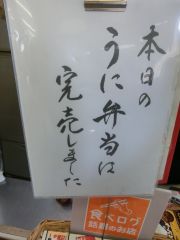 本日の
うに弁当は
完売しました
食べログ
話題のお店